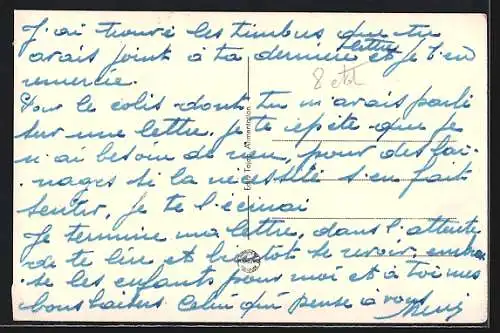 J'ai trouvé les timbres que tu
avais joint à ta dernière lettre et je t'en
remercie.
8
Pour le colis dont tu m'avais parlé
sur une lettre, je te répète que je
n'ai besoin de rien, pour des lai-
nages si la nécessité s'en fait
sentir, je te l'écrirai
Je termine ma lettre, dans l'attente
de te lire et bientôt se revoir,
se les enfants pour moi et à toi mes
bons baisers. Celui qui pense à vous